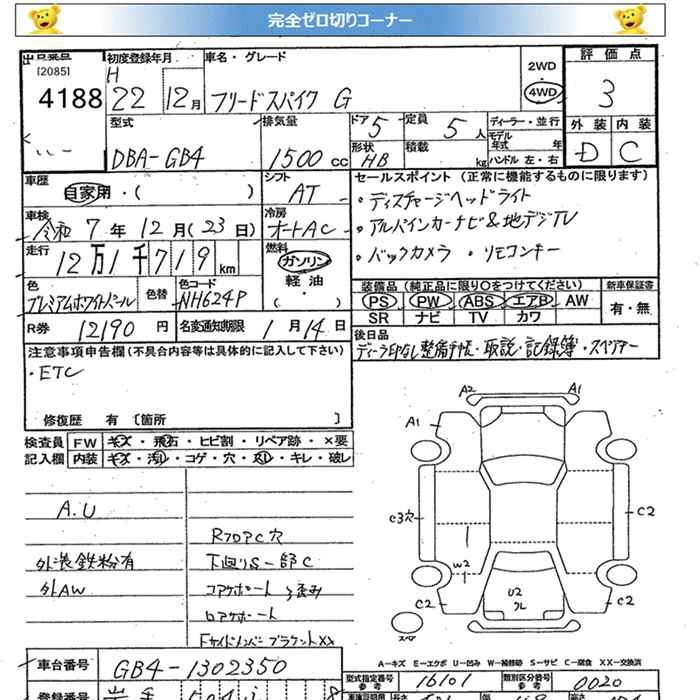 完全ゼロ切りコーナー
出品番号 初度登録年月 車名・グレード 2WD 評価点
[2085] H ・
4188 22 12月 フリードスパイク G 4WD 3
型式 排気量 ドア 5 定員 5 人 ディーラー・並行 外装 内装
DBA-GB4 1500 cc 形状 HB 積載 kg モデル年式 年式 ハンドル 左・右 D C
車歴 シフト セールスポイント（正常に機能するものに限ります）
自家用・（ ） AT ・ディスチャージヘッドライト
車検 冷房 ・アルパインカーナビ&地デジTV
令和 7年 12月(23日) オートAC ・バックカメラ ・リモコンキー
走行 燃料
12万1千719 km ガソリン
色 色替 色コード 軽油 装備品（純正品に限り○をつけてください） 新車保証書
プレミアムホワイトパール NH624P ・ PS PW ABS エアB AW 有・無
（ ） SR ナビ TV カワ
R券 12190 円 名変通知期限 1月14日 後日品
ディーラ印なし整備手帳・取説・記録簿・スペアキー
注意事項申告欄（不具合内容等は具体的に記入して下さい）
・ETC
修復歴 有 〔箇所 〕
検査員 FW キズ・飛石・ヒビ割・リペア跡・×要
記入欄 内装 キズ・汚レ・コゲ・穴・スレ・キレ・破レ
A2 A1
A1
A.U
C3穴 C2
RフロアC穴
外装鉄粉有 下廻りS一部C
W2
外AW コアサポート歪み
U2
C2 C2
ロアサポート
スペア
FサイドメンバーブラケットXX
A-キズ E-エクボ U-凹み W-補修跡 S-サビ C-腐食 XX-交換済
車台番号 GB4-1302350 型式指定番号 16101 類別区分番号 0020
参考 参考
登録番号 岩手